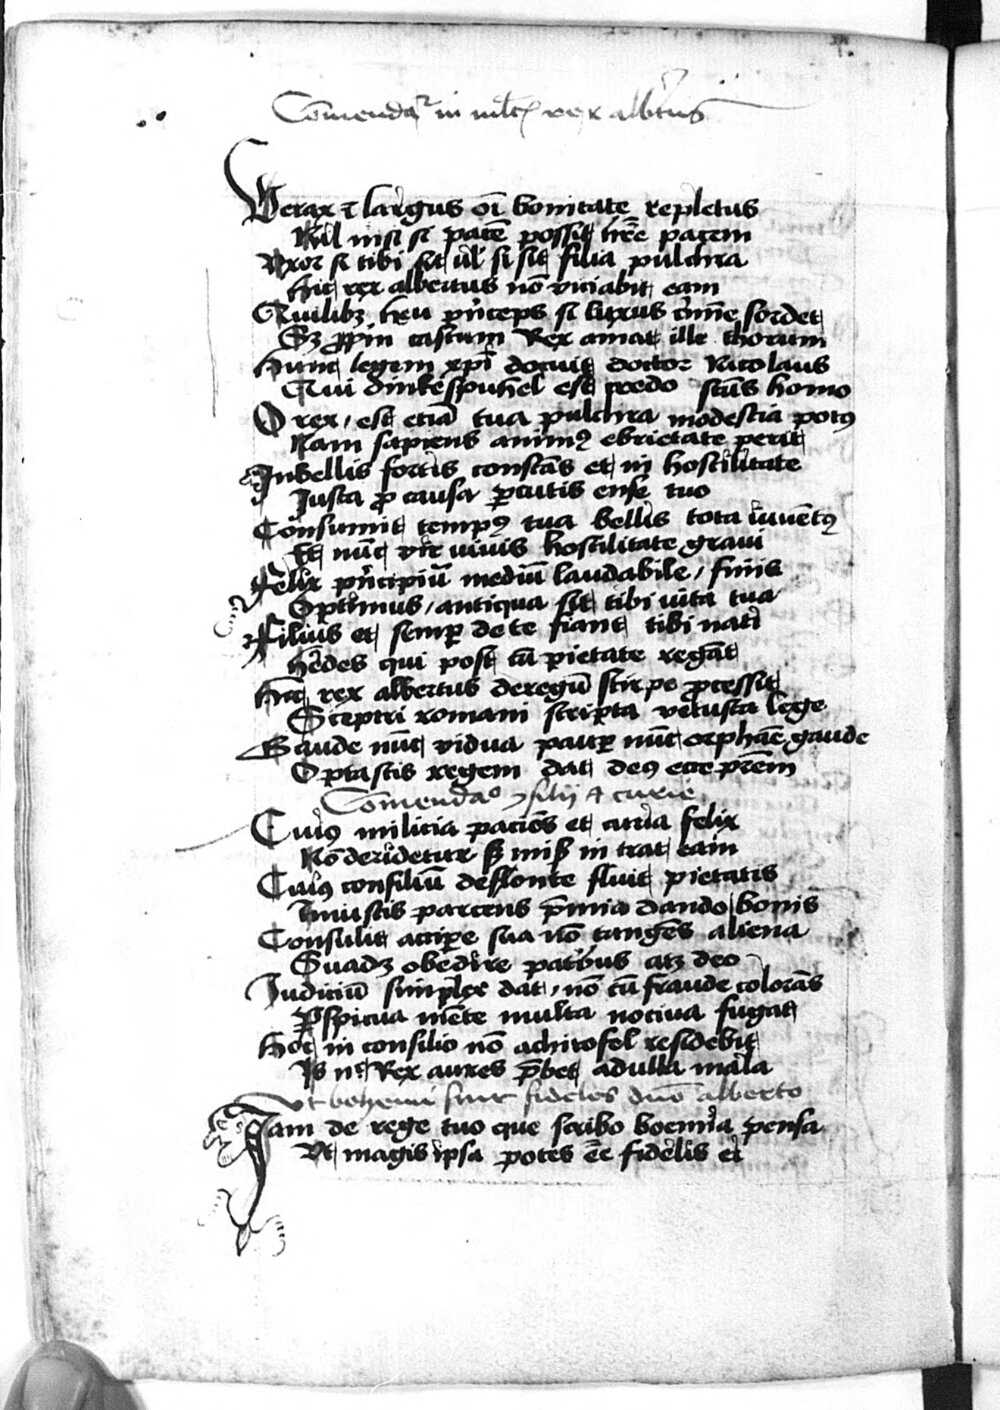 Com̄endat᷑ in mltꝭ rex albertus
Uerax ⁊ largus oī bonitate repletus
Nil nisi si patē possit hr̄e pacem
Uxor si tibi sit ul̓ si sit filia pulchra
hic rex albertus nō viciabit eam
Quilibꝫ heu prīceps si luxus crīme sordet
Sꝫ ꝓpriū castum Rex amat ille thorum
hunc legem xp̄i docuit doctor Nicolaus
Qui dinkespuhel est credo scūs homo
O rex / est etiā tua pulchra modestia potꝰ
Nam sapiens animꝰ ebrietate perit
In bellis fortis constās et in hostilitate
Justa ꝓ causa ꝑcutis ense tuo
Consumit tempꝰ tua bellis tota iuuentꝰ
Et nūc vir viuis hostilitate graui
Felix prīcipiū mediū laudabile / finis
Optimus / antiqua sit tibi uita tua
Filius et semꝑ de te fiant tibi nati
herēdes qui post cū pietate regāt
hic rex albertus de regū stirpe ꝓcessit
Sceptri romani scripta vetusta lege
Gaude nūc vidua pauꝑ nūc orphāe gaude
Optastis regem dat deꝰ ecce prēm
Comendaᵒ ↄsilij ⁊ curie
Cuiꝰ milicia paciēs et curia felix
Nō deridetur sꝫ misꝰ intrat eam
Cuiꝰ consiliū de fonte fluit pietatis
Iniustis parcens p̄mia dando bonis
Consulit accipe sua nō tangēs aliena
Suadꝫ obedire patribus atꝫ deo
Judiciū simplex dat / nō cū fraude colorās
ꝑspicua mēte multa nociua fugat
Hoc in consilio nō achitofel residebit
Is nec Rex aures p̄bet adulla mala
Ut bohemi sint fideles dn̄o alberto
Iam de rege tuo que scribo boemia pensa
Ut magis ipsa potes eē fidelis ei